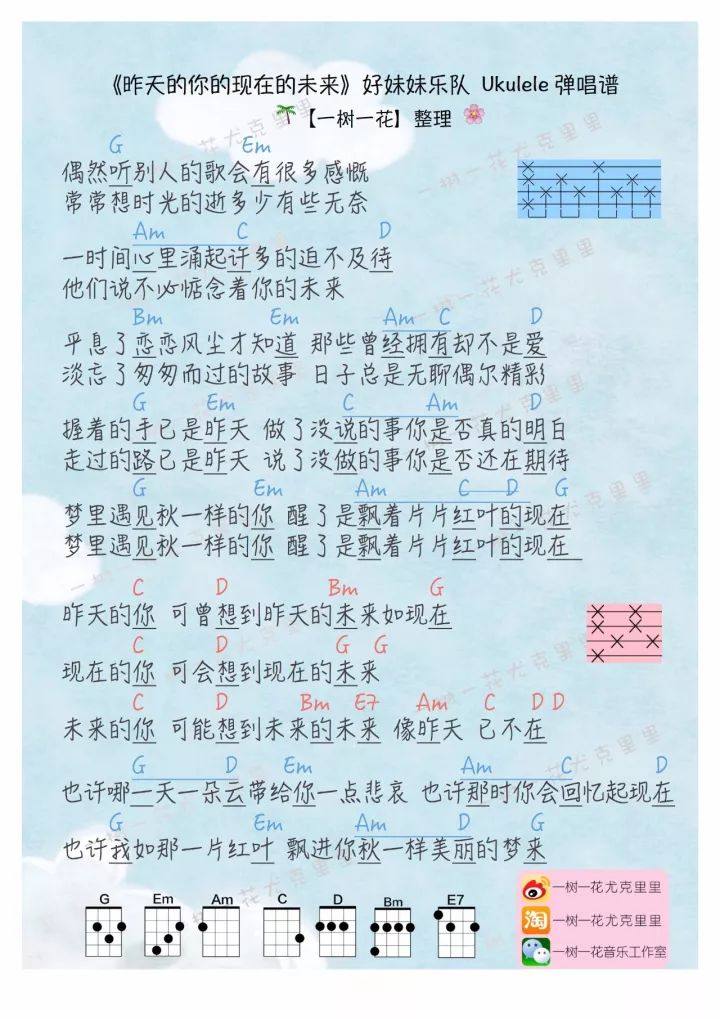 《昨天的你的现在的未来》好妹妹乐队 Ukulele 弹唱谱
【一树一花】整理
G Em
偶然听别人的歌会有很多感慨
常常想时光的逝多少有些无奈
Am C D
一时间心里涌起许多的迫不及待
他们说不必惦念着你的未来
Bm Em Am C D
平息了恋恋风尘才知道 那些曾经拥有却不是爱
淡忘了匆匆而过的故事 日子总是无聊偶尔精彩
G Em C Am D
握着的手已是昨天 做了没说的事你是否真的明白
走过的路已是昨天 说了没做的事你是否还在期待
G Em Am C D G
梦里遇见秋一样的你 醒了是飘着片片红叶的现在
梦里遇见秋一样的你 醒了是飘着片片红叶的现在
C D Bm G
昨天的你 可曾想到昨天的未来如现在
C D G G
现在的你 可会想到现在的未来
C D Bm E7 Am C D D
未来的你 可能想到未来的未来 像昨天 已不在
G D Em Am C D
也许哪一天一朵云带给你一点悲哀 也许那时你会回忆起现在
G Em Am D G
也许我如那一片红叶 飘进你秋一样美丽的梦来
G Em Am C D Bm E7
一树一花尤克里里
淘 一树一花尤克里里
一树一花音乐工作室